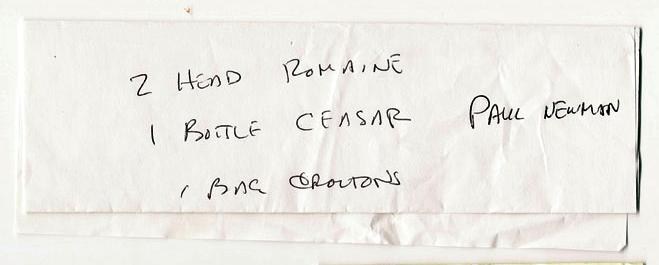 2 HEAD ROMAINE
1 BOTTLE CEASAR PAUL NEWMAN
1 BAG CROUTONS